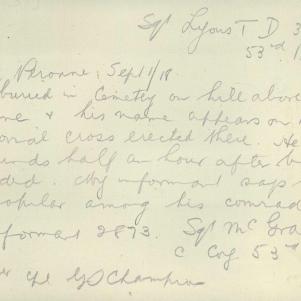 Sgt Lyons T D 3
53rd
Peronne, Sep 1/18.
buried in Cemetery on hill above
me & his name appears on
orial cross erected there. He
unds half an hour after b
ded. My informant says
opular among his comrad
formant 2873. Sgt McGra
C Coy 53rd
Cpl G S Champion